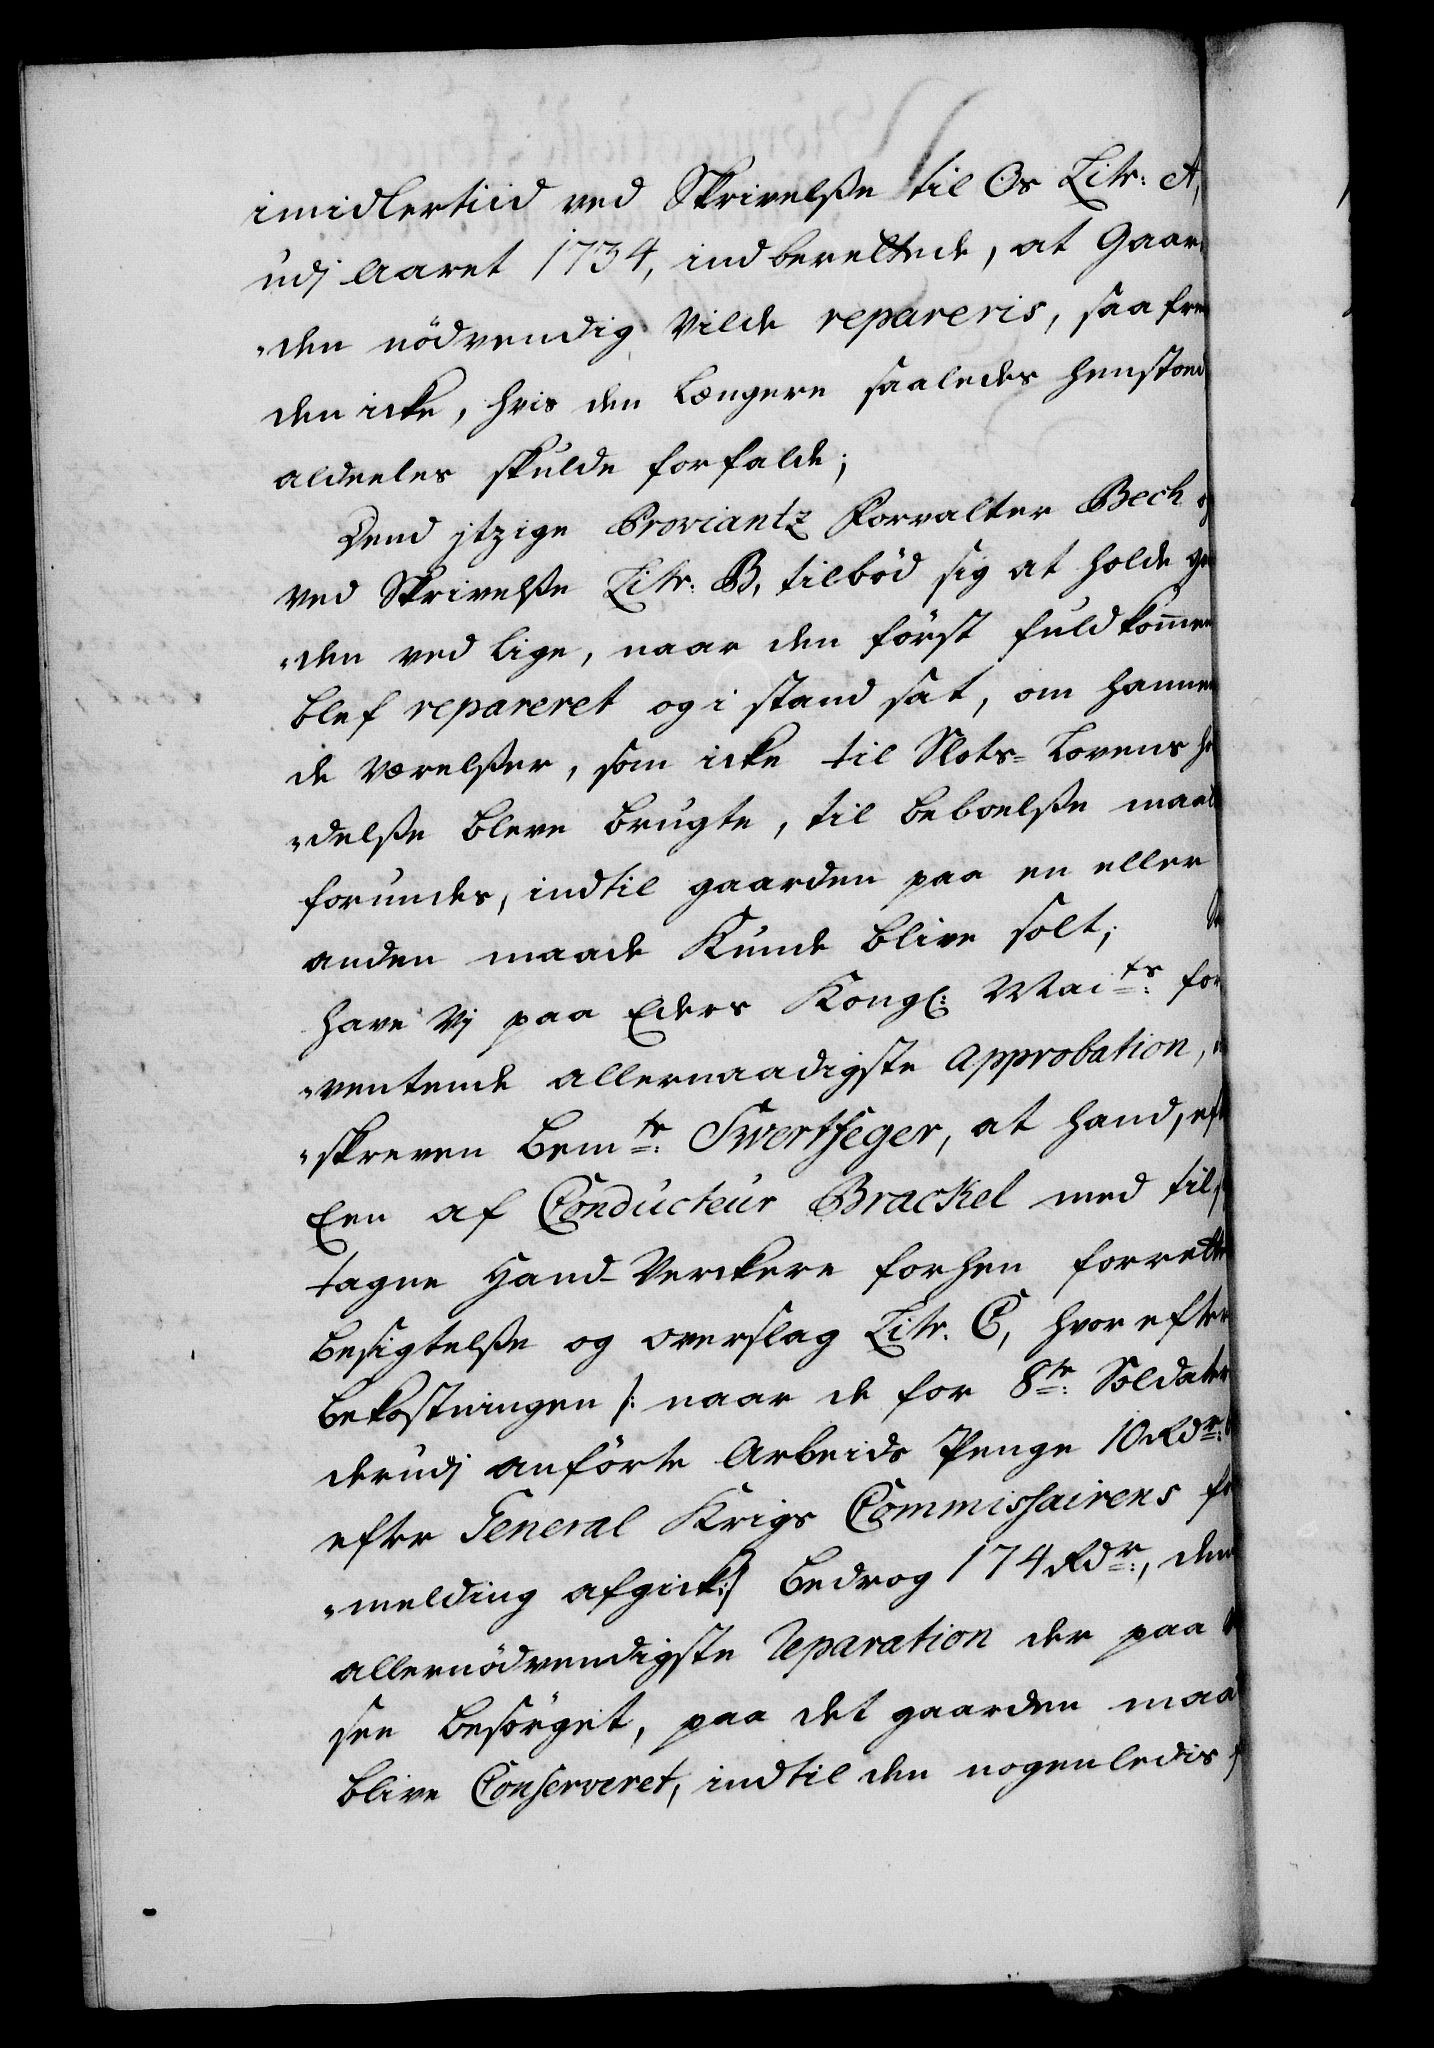 imidlertiid ved Skrivelße til Os Litr: A,
udj Aaret 1734, indberettede, at Gaar
„den nödvendig vilde repareris, saafre
den icke, hvis den længere saaledes henstoed
aldeeles skulde forfalde;
Dend itzige Proviantz Forvalter Bech
ved Skrivelße Litr: B, tilböd sig at holde
„den ved lige, naar den först fuldkommen
blef repareret og i stand sat, om hannem
de værelßer, som icke til Slots-Lovens
„delße bleve brugte, til beboelße maatte
forundes, indtil gaarden paa en eller
anden maade kunde blive solt;
have Vj paa Eders Kongl: Maits: for
„ventende allernaadigste Approbation,
„skreven bemte: Swertfeger, at hand, eft
Een af Conducteur Brackel med til
tagne Hand-Verckere forhen forrettet
besigtelße og overslag Litr. C, hvorefter
bekostningen /: naar de for 8te: Soldater
derudj anförte Arbeids Penge 10 Rdr:
efter General Krigs Commissairens
„melding afgick :/ bedrog 174 Rdr:, den
allernödvendigste Reparation der paa
see besörget, paa det gaarden maa
blive Conserveret, indtil den nogenledis